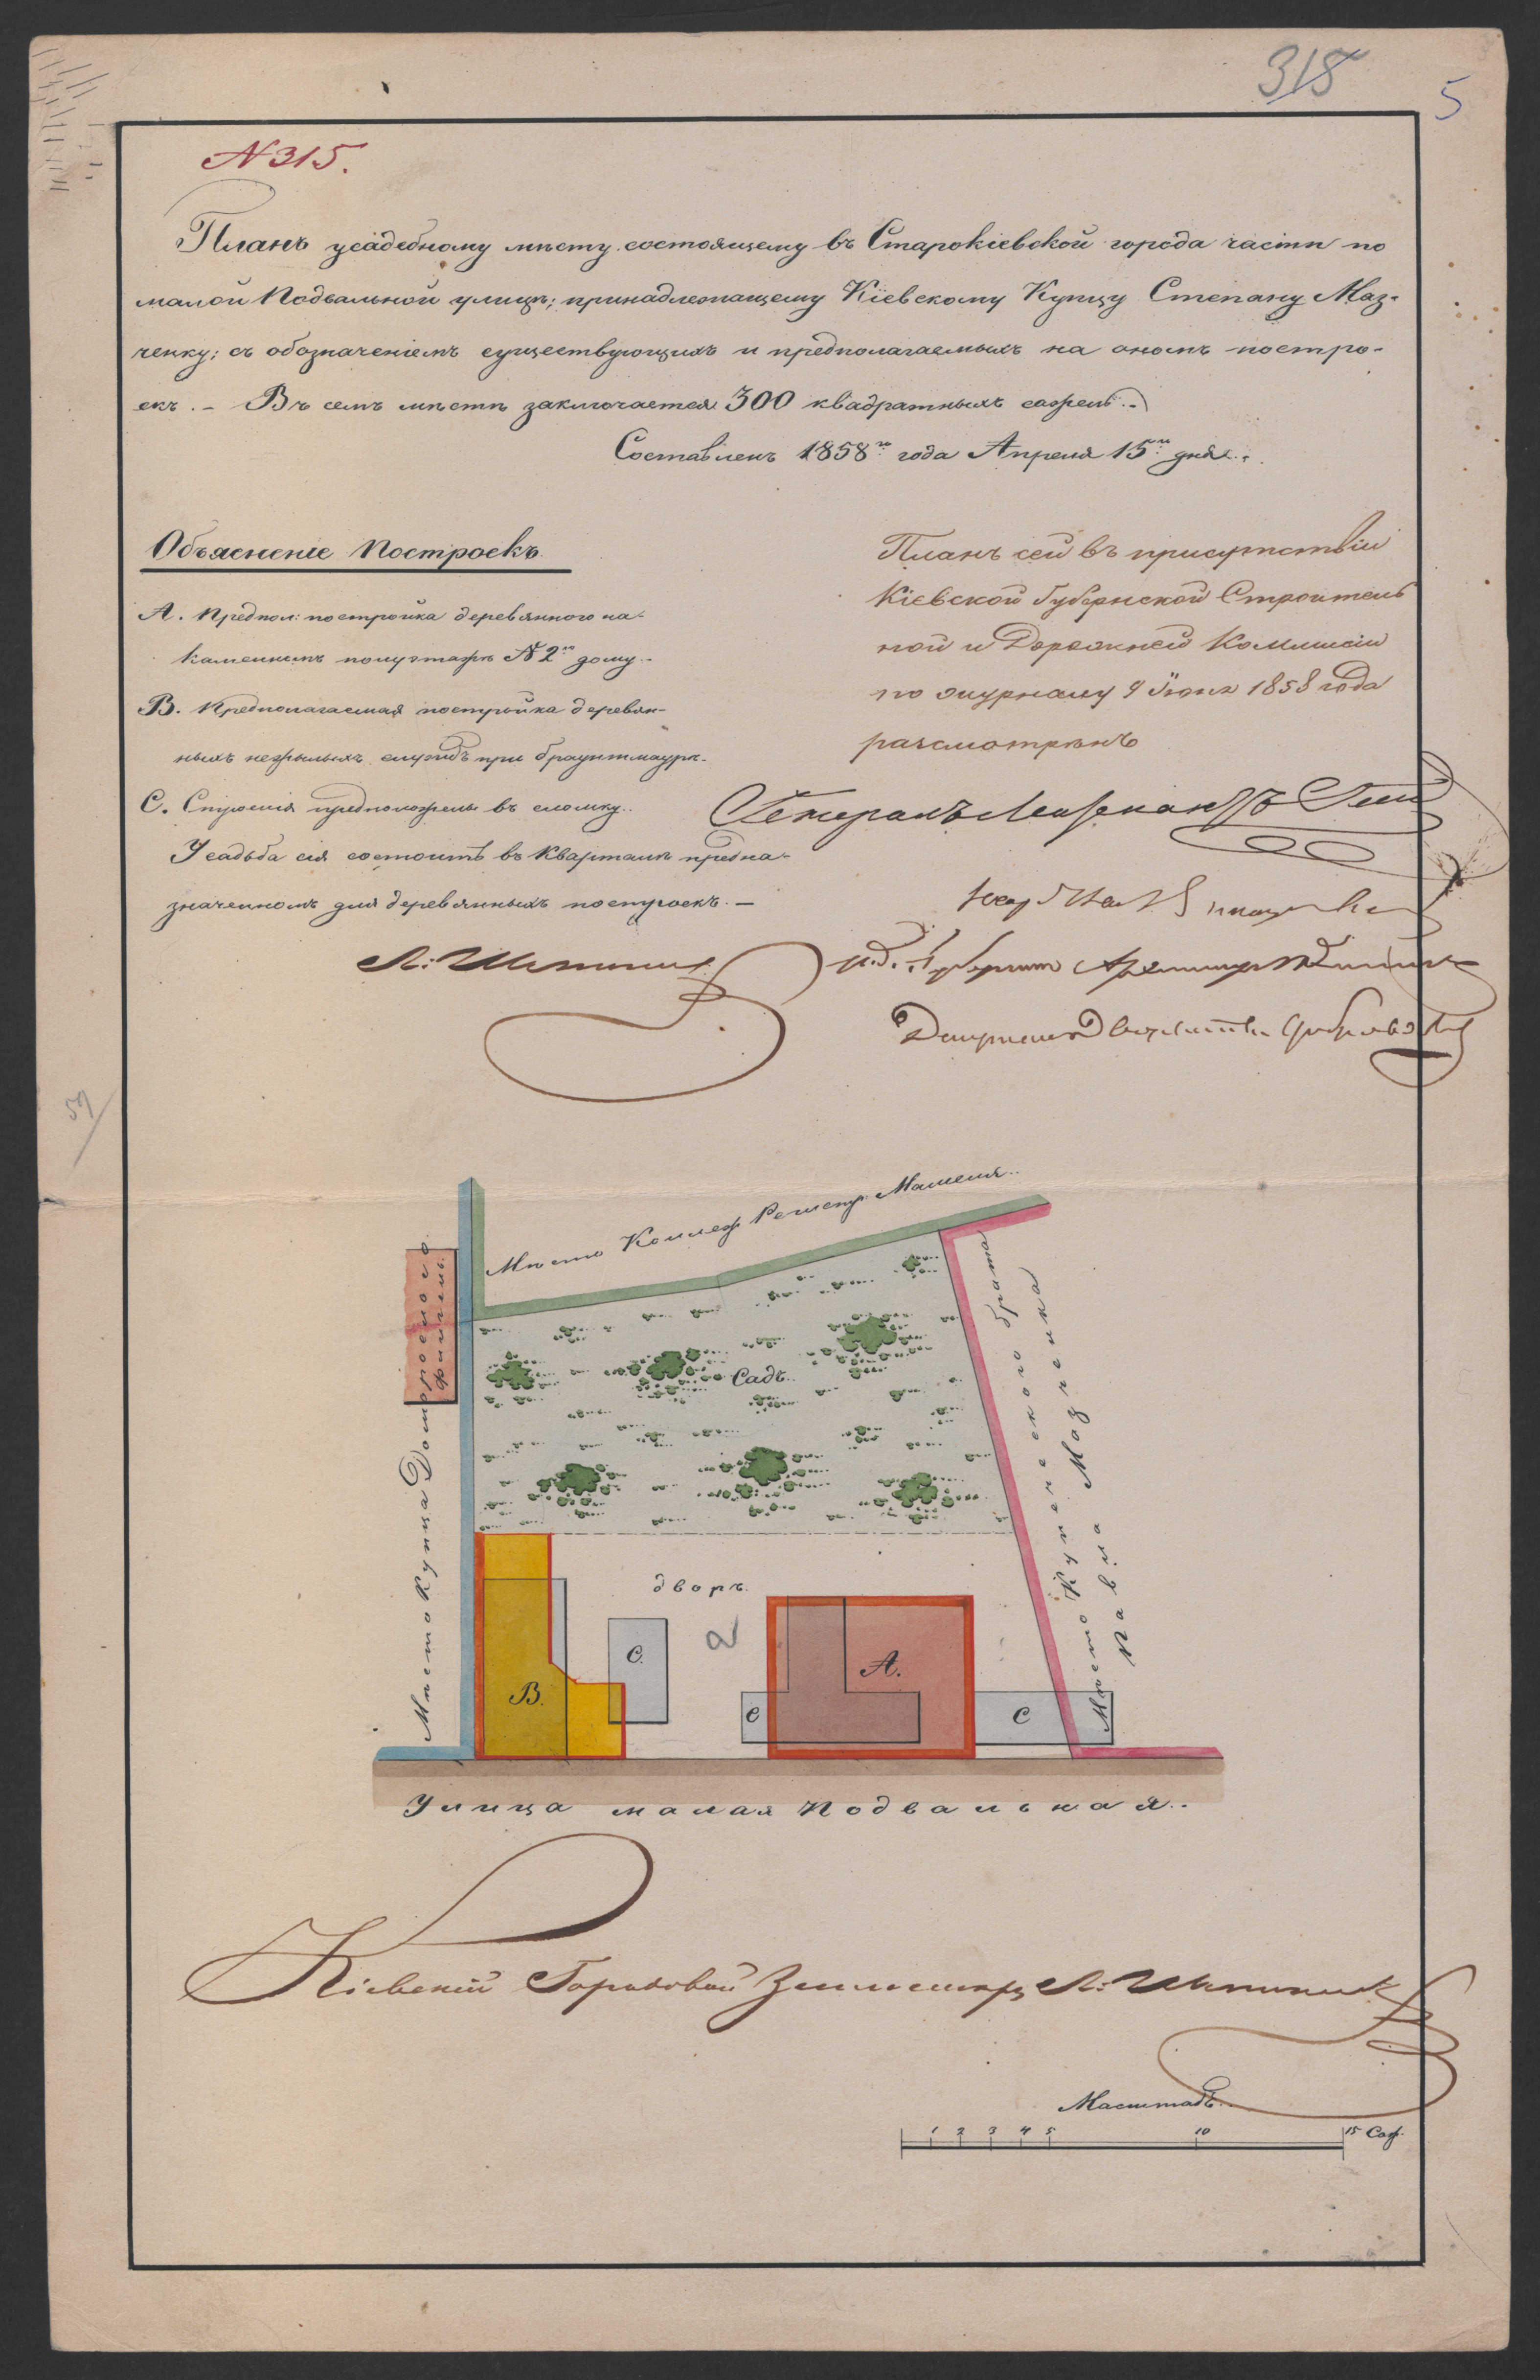 318
5
N 315.
Планъ усадебному мѣсту состоящему въ Старокіевской города части по
малой Подвальной улицѣ; принадлежащему Кіевскому Купцу Степану Маз-
ченку; съ обозначеніемъ существующихъ и предполагаемыхъ на ономъ постро-
екъ. – Въ семъ мѣстѣ заключается 300 квадратныхъ сажень. –
Составленъ 1858го года Апреля 15го дня.
Объясненіе Построекъ.
А. Предпол: постройка деревяннаго на-
каменномъ полуэтажѣ N 2м дому. –
В. Предполагаемая постройка деревян-
ныхъ нежилыхъ службъ при брандтмаурѣ.
С. Строенія предположены въ сломку.
Усадьба сія состоитъ въ Кварталѣ предна-
значенномъ для деревянныхъ построекъ. –
Планъ сей въ присутствіи
Кіевской Губернской Строитель
ной и Дорожней Коммисіи
по журналу 9 Іюня 1858 года
разсмотрѣнъ
Генералъ Лейтенантъ
И.д. Губернск Архитектора
59
Мѣсто Коллеж Регистр
Мѣсто Купца
Флигель
Садъ.
Мѣсто Купеческого брата
Павла Мазченка
дворъ.
2
А.
В.
С.
С
С
Улица малая Подвальная.
Кіевскій Городовой Землемѣръ Л:
Масштабъ
1 2 3 4 5 10 15 Саж.